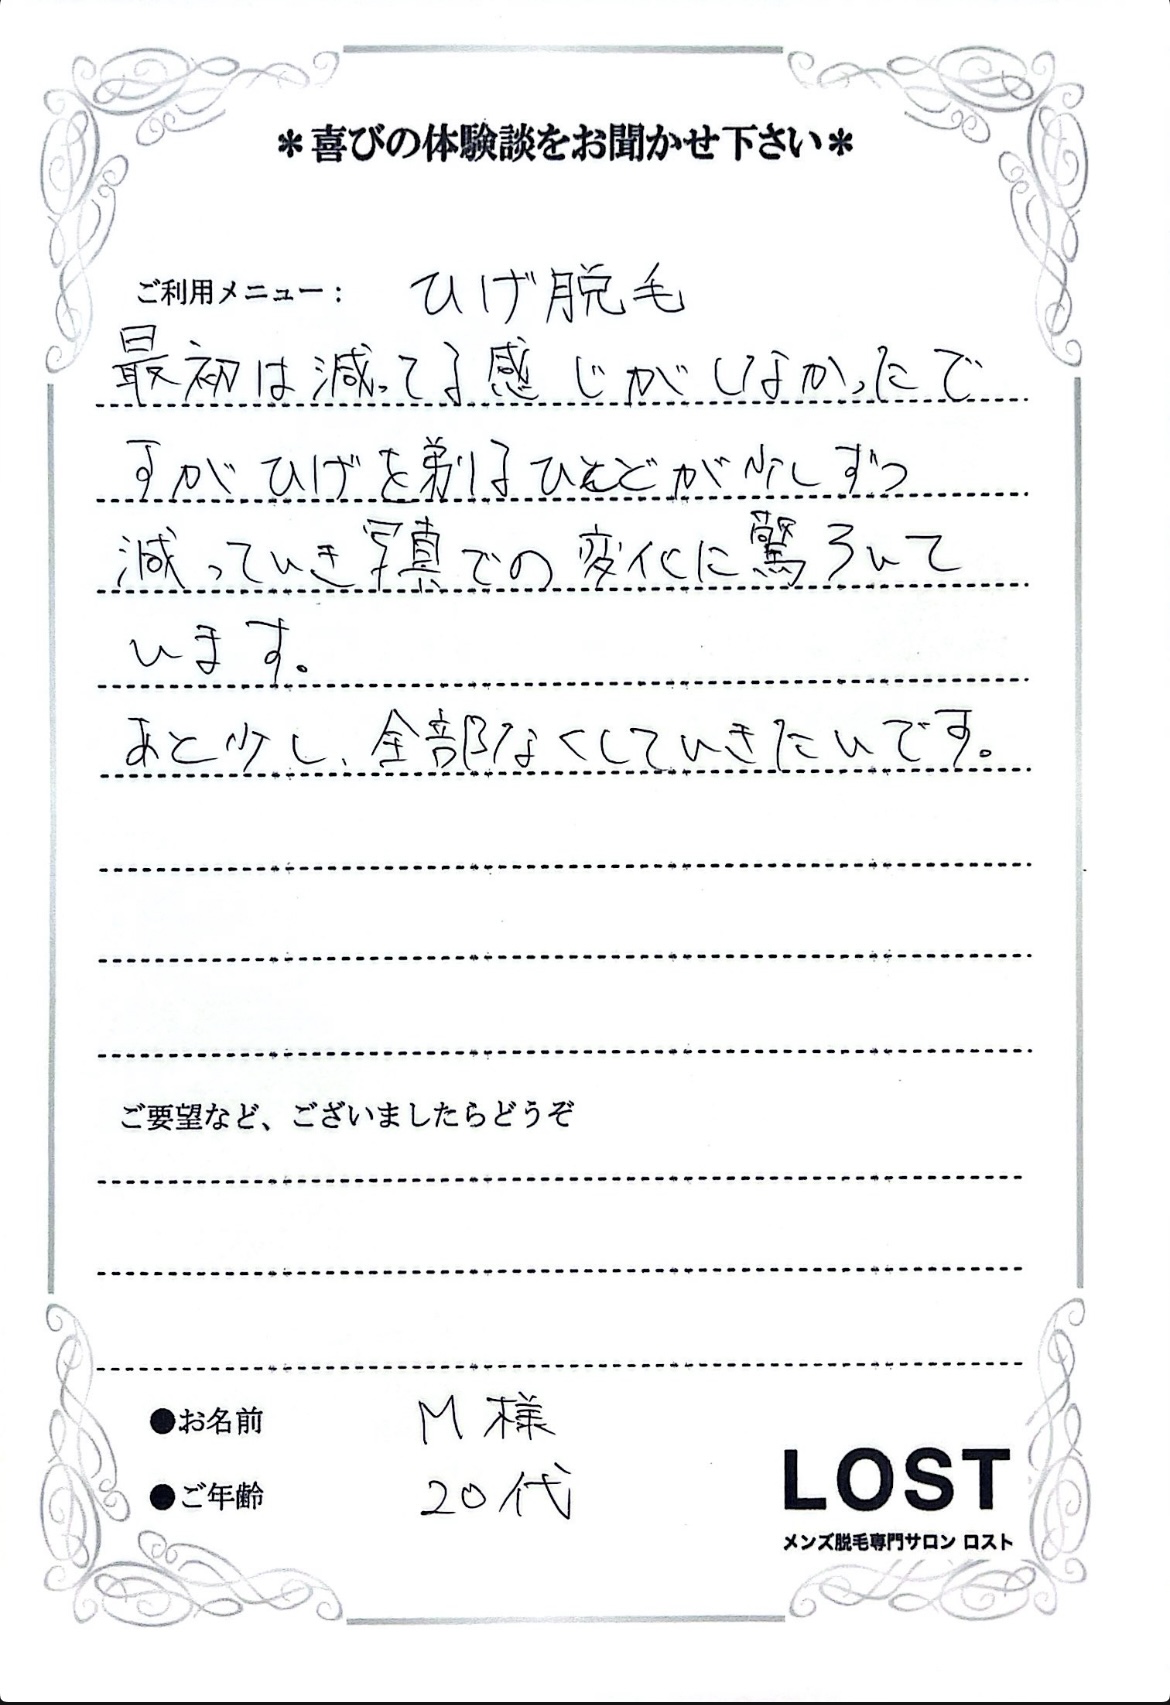 ＊喜びの体験談をお聞かせ下さい＊
ご利用メニュー： ひげ脱毛
最初は減ってる感じがしなかったで
すがひげを剃るひんどが少しずつ
減っていき写真での変化に驚ろいて
います。
あと少し、全部なくしていきたいです。
ご要望など、ございましたらどうぞ
●お名前 M様
●ご年齢 20代
LOST
メンズ脱毛専門サロン ロスト